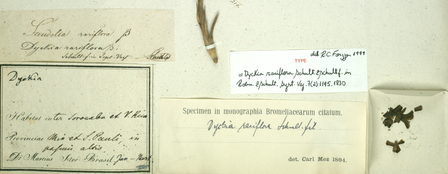 Dyckia rariflora β.
Schult. fil. Syst. Veg.
det. R.C. Forzza 1999
TYPE
Dyckia rariflora Schult. & Schult.f. in
Roem. & Schult. Syst. Veg. 7(2): 1195. 1830
Dyckia
Habitat inter Sorocaba et V.
Provinciae St. Pauli, in
altis.
Dr. Martius Iter Brasil.
Specimen in monographia Bromeliacearum citatum.
Dyckia rariflora Schult. fil
det. Carl Mez 1894.